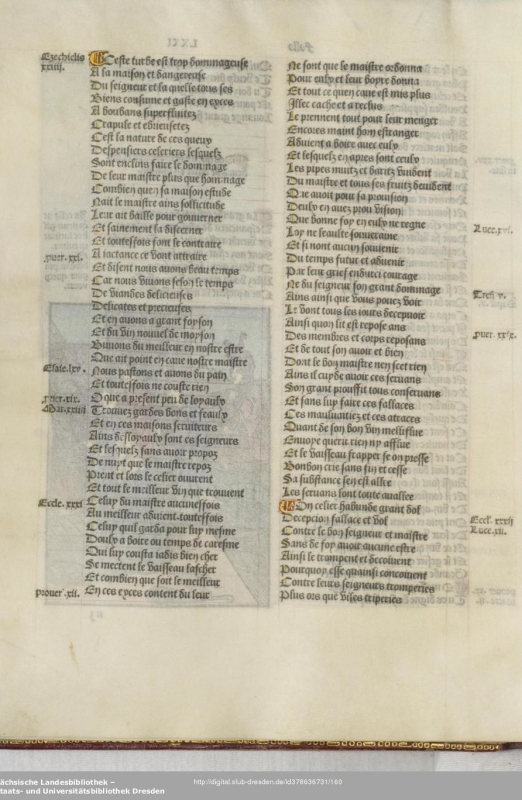 Ezechielis
xxiiij.
Ceste turbe est trop dommageuse
A la maison et dangereuse
Du seigneur et la quelle tous ses
Biens consume et gaste en exces
A boubans superfluitez
Crapule et ebrieusetez
Cest la nature de ces queux
Despensiers celeriers lesquelz
Sont enclins faire le dommage
De leur maistre plus que hommage
Combien quen sa maison estude
Nait le maistre ains sollicitude
Leur ait baille pour gouverner
Et sainement la discerner
Et toutesfois sont le contraire
prover. xxi.
A iactance se vont attraire
Et disent nous avons beau temps
Car nous vivons selon le temps
De viandes delicieuses
Delicates et precieuses
Et en avons a grant foyson
Et du vin nouvel de moyson
Buvons du meilleur en nostre estre
Que ait point en cave nostre maistre
Esaie. lxv.
Nous pastons et avons du pain
Et toutesfois ne couste rien
prover. xix.
O que a present peu de loyaulx
Mat. xxiiii
Trouvez gardes bons et feaulx
Et en ces maisons serviteurs
Ains desloyaulx sont ces seigneurs
Et lesquelz sans avoir propoz
De nuyt que le maistre repoz
Prent et lors le celier ouvrent
Et tout le meilleur vin que trouvent
Eccle. xxxi
Celuy du maistre aucunesfois
Au meilleur advient toutesfois
Celuy quil garda pour luy mesme
Doulx a boire ou temps de caresme
Qui luy cousta iadis bien cher
Se mectent le vaisseau fascher
Et combien que soit le meilleur
prover. xii.
En ces exces content du leur
Ne font que le maistre ordonna
Pour eulx et leur boyre donna
Et tout ce quen cave est mis plus
Illec cache et a reclus
Le prennent tout pour leur menger
Encores maint hom estranger
Advient a boire avec eulx
Et lesquelz en apres sont ceulx
Les pipes muitz et baritz vuident
Du maistre et tous ses fruitz devident
Que avoit pour sa provision
Deulx en avez prou vision
Que bonne foy en eulx ne regne
Luce. xvi.
Loy ne feaulte souveraine
Et si nont aucun souvenir
Du temps futur et advenir
Par leur grief endurci courage
Ne du seigneur son grant dommage
Tren v.
Ains ainsi que vous povez voir
Le vont tous les iours decepvoir
Ainsi quon lit est repose ans
prover. xxix.
Des membres et corps reposans
Et de tout son avoir et bien
Dont le bon maistre nen scet rien
Ains il cuyde avoir ces servans
Son grant prouffit tous conservans
Et sans luy faire ces fallaces
Ces mauluaitiez et ces atraces
Quant de son bon vin melliflue
Envoye querir rien ny afflue
Et le vaisseau frapper se on presse
Bonbon crie sans fin et cesse
Sa substance sen est allee
Les servans lont toute avallee
En celier habunde grant dol
Eccl. xxxij
Decepcion fallace et vol
Luce. xii.
Contre le bon seigneur et maistre
Sans de foy avoir aucune estre
Ainsi le trompent et decoivent
Pourquoy esse quainsi concoivent
Contre leurs seigneurs tromperies
Plus ors que viles triperies
ächsische Landesbibliothek –
taats- und Universitätsbibliothek Dresden
http://digital.slub-dresden.de/id378636731/160